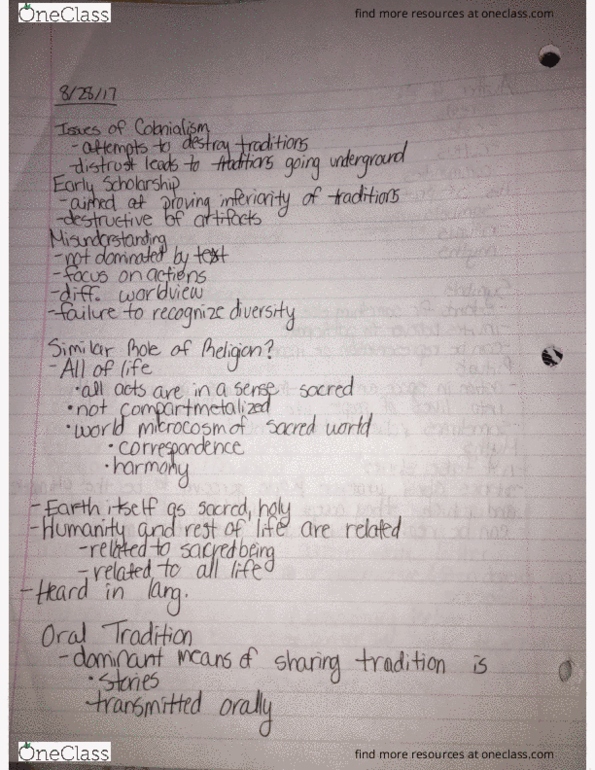 OneClass
find more resources at oneclass.com
8/28/17
Issues of Colonialism
- attempts to destray traditions
- distrust leads to traditions going underground
Early Scholarship
- aimed at proving inferiority of traditions
- destructive of artifacts
Misunderstanding
- not dominated by text
- focus on actions
- diff. worldview
- failure to recognize diversity
Similar Role of Religion?
- All of life
• all acts are in a sense sacred
• not compartmetalized
• world microcosm of sacred world
• correspondence
• harmony
- Earth itself as sacred, holy
- Humanity and rest of life are related
- related to sacred being
- related to all life
- Heard in lang.
Oral Tradition
- dominant means of sharing tradition is
• stories
• transmitted orally
OneClass
find more resources at oneclass.com